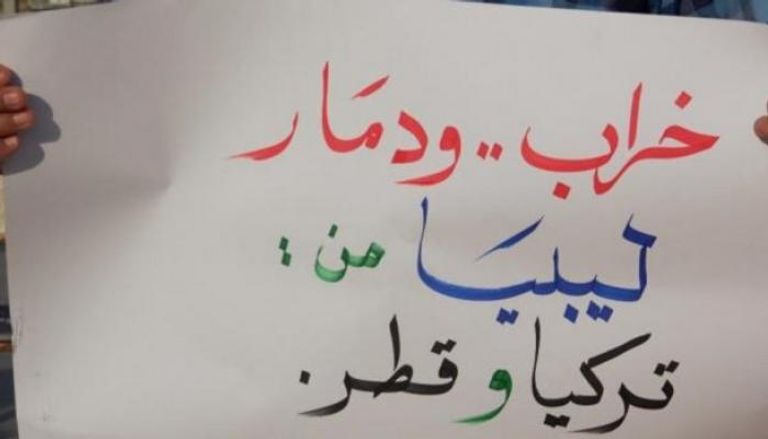 خراب .. ودمار
ليبيا من :
تركيا و قطر .